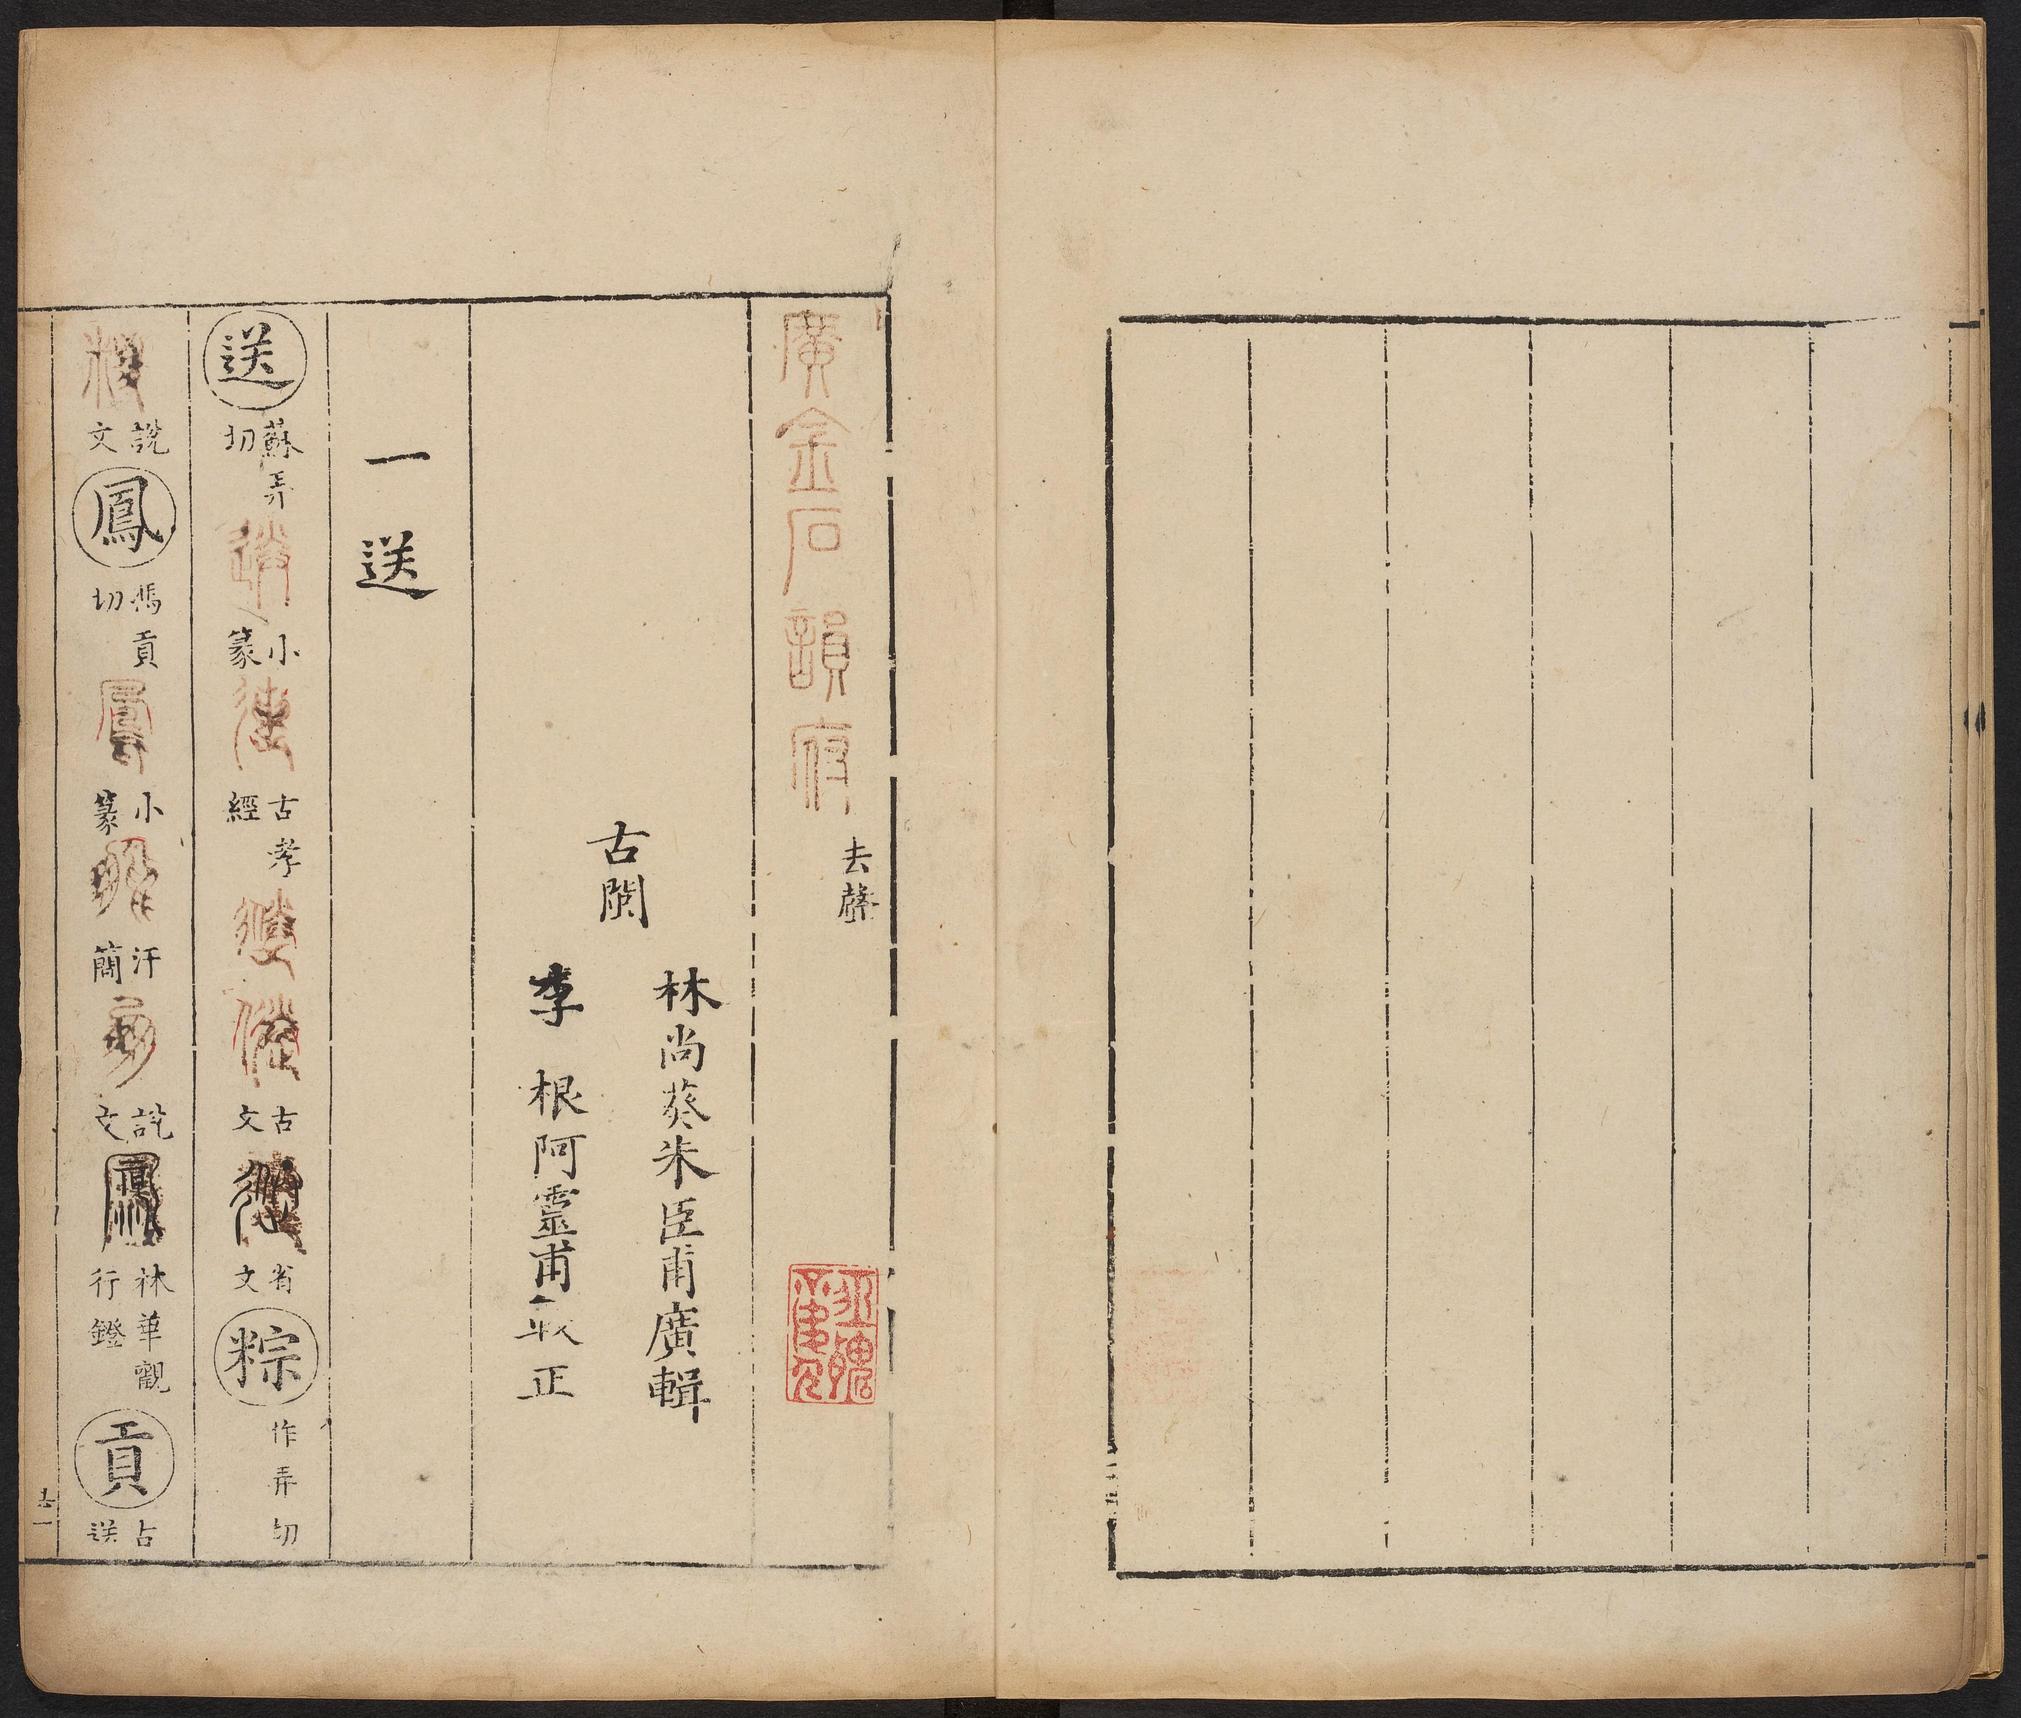 廣金石韻府 去聲
古閩
林尚葵朱臣甫廣輯
李根阿靈甫較正
一送
送 蘇弄切 小篆 古孝經 古文 省文 粽 作弄切
說文 鳳 馮貢切 小篆 汗簡 說文 林華觀行鐙 貢 古送
去一